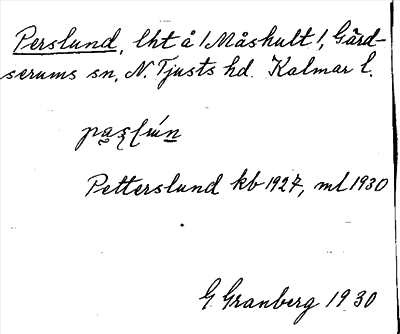 Perslund, lht å / Måshult /, Gärd-
serums sn, N. Tjusts hd. Kalmar l.
Petterslund kb 1927, ml 1930
G. Granberg 1930